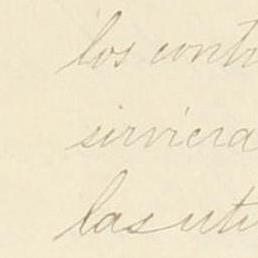 los contr
serviera
las uti